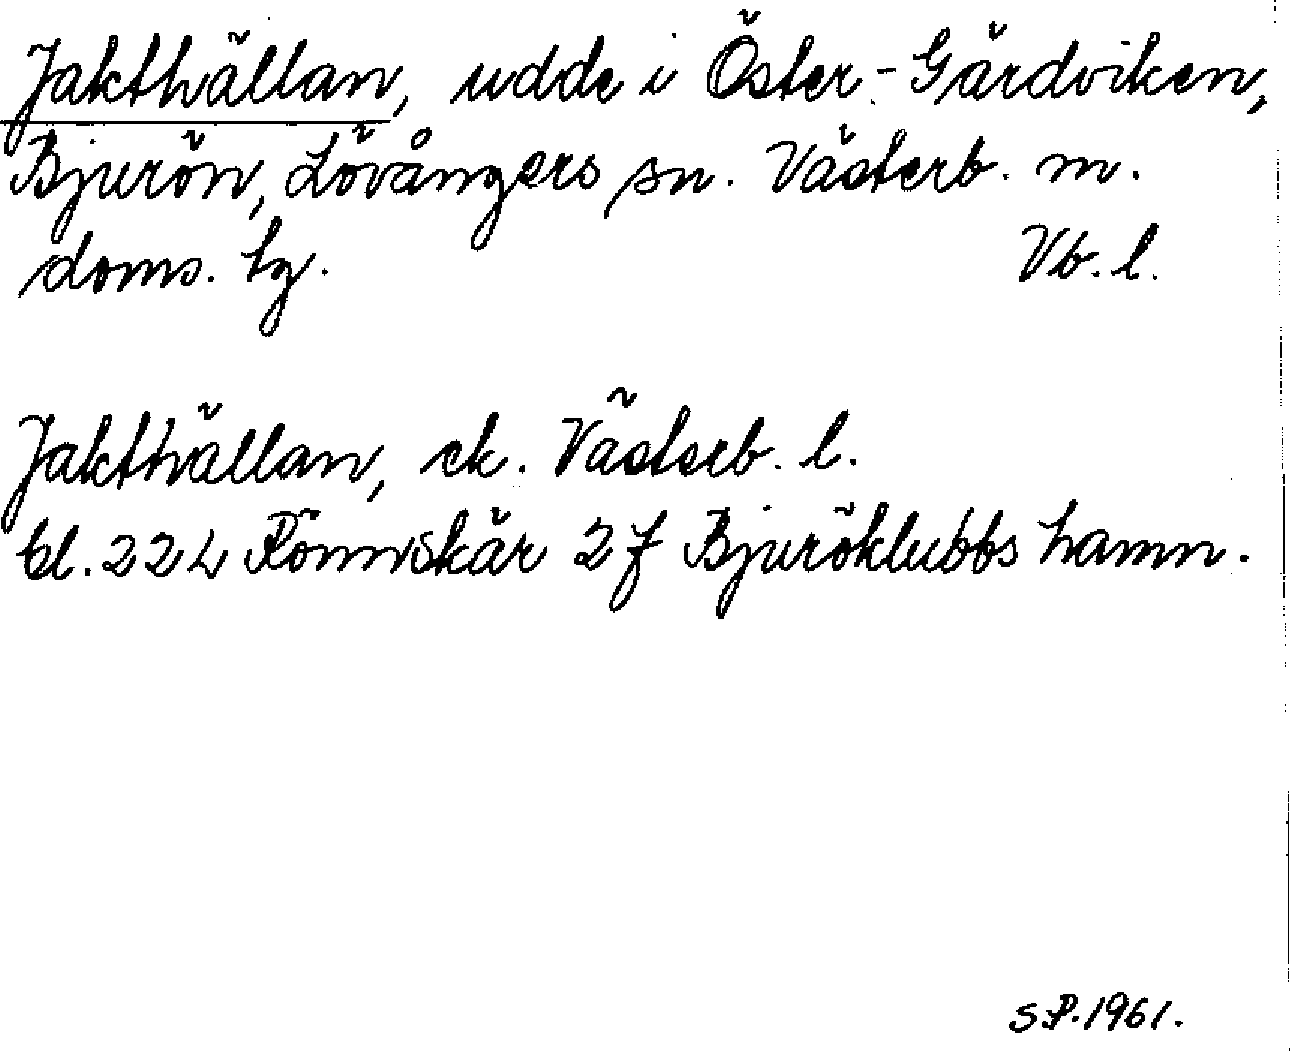 Jakthällan, udde i Öster-Gärdviken,
Bjurön, Lövångers sn. Västerb. m.
doms. hg. Vb. l.
Jakthällan, ek. Västerb. l.
bl. 22L Rönnskär 2f Bjuröklubbs hamn.
S.P. 1961.